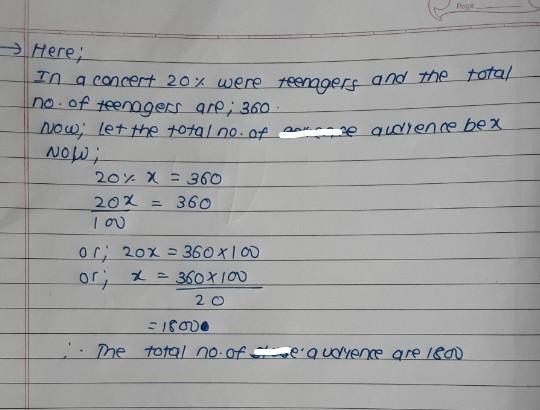 Page
→ Here;
In a concert 20% were teenagers and the total
no. of teenagers are; 360.
Now; let the total no. of audience be x
Now;
20% x = 360
20x = 360
100
or; 20x = 360×100
or; x = 360×100
20
= 1800
∴ The total no. of audyence are 1800